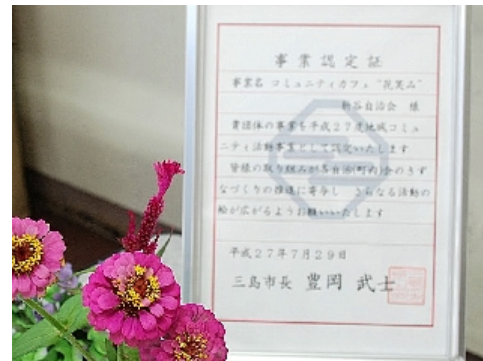 事業認定証
事業名 コミュニティカフェ "花笑み"
新谷自治会 様
貴団体の事業を平成27年度地域コミュ
ニティ活動事業として認定いたします
皆様の取り組みが各自治(町内)会のきず
なづくりの推進に寄与し さらなる活動の
輪が広がるようお願いいたします
平成27年7月29日
三島市長 豊岡 武士